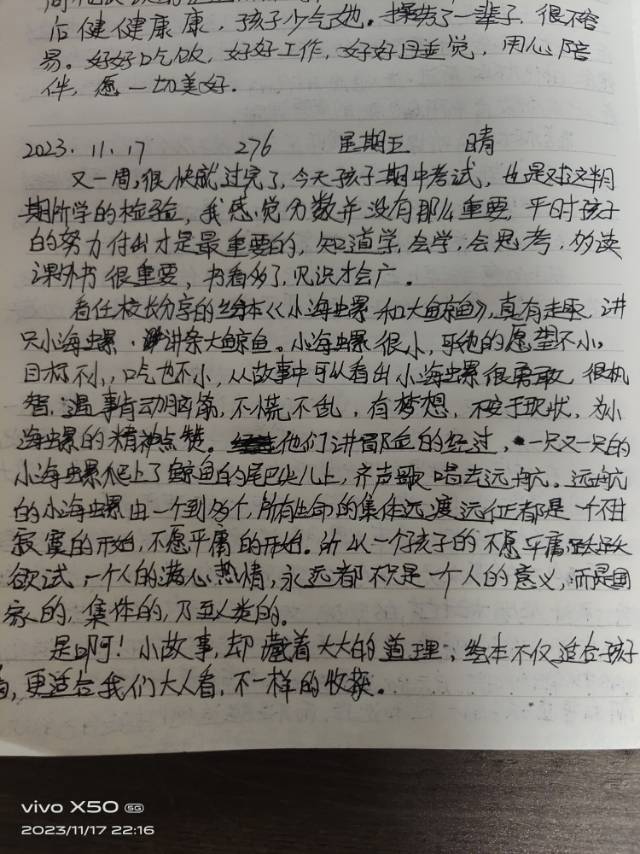 后健健康康，孩子少气她。操劳了一辈子，很不容
易。好好吃饭，好好工作，好好目垂觉，用心陪
伴，愿一切美好.
2023.11.17 276 星期五 晴
又一周，很快就过完了，今天孩子期中考试，也是对这半月
期所学的检验，我感觉分数并没有那么重要，平时孩子
的努力付出才是最重要的，知道学，会学，会思考，多读
课外书很重要，书看多了，见识才会广。
看任校长分享的绘本《小海螺和大鲸鱼》，真有走取，讲
只小海螺，讲条大鲸鱼。小海螺很小，可他的愿望不小，
目标不小，口吃也不小，从故事中可以看出小海螺很勇敢，很机
智，遇事肯动脑筋，不慌不乱，有梦想，不安于现状，为小
海螺的精神点赞。他们讲冒险的经过，一只又一只的
小海螺爬上了鲸鱼的尾巴尖儿上，齐声歌唱去远航。远航
的小海螺由一个到多个，所有生命的集体远渡远征都是一个不甘
寂寞的开始，不愿平庸的开始。所以一个孩子的不愿平庸，跃跃
欲试，一个人的满心热情，永远都不只是一个人的意义，而是国
家的，集体的，乃至人类的。
是啊！小故事，却藏着大大的道理，绘本不仅适合孩子
看，更适合我们大人看，不一样的收获。
vivo X50 5G
2023/11/17 22:16